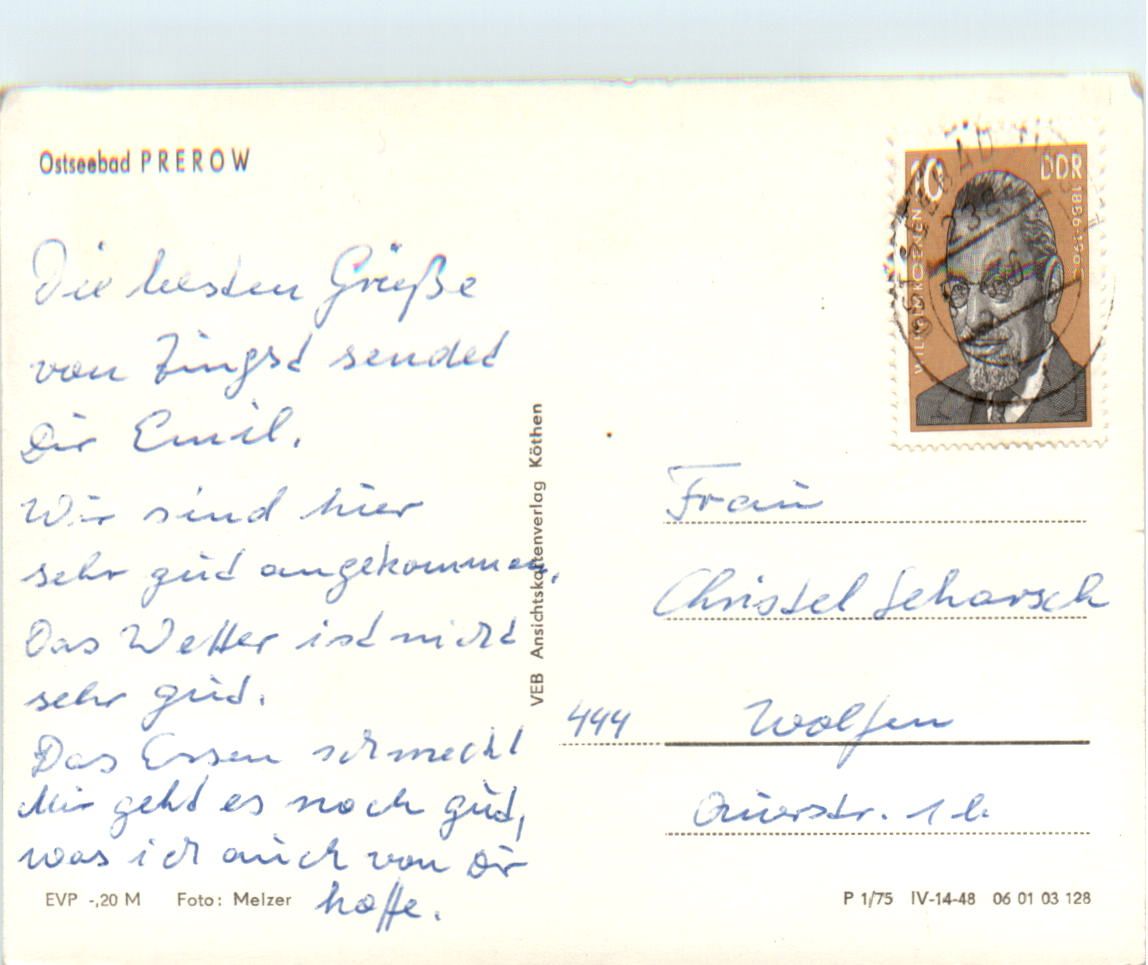 Ostseebad PREROW
Die besten Grüße
von Zingst sendet
Dir Emil.
Wir sind hier
sehr gut angekommen.
Das Wetter ist nicht
sehr gut.
Das Essen schmeckt
Mir geht es noch gut,
was ich auch von Dir
hoffe.
EVP -,20 M Foto: Melzer
VEB Ansichtskartenverlag Köthen
10 DDR
WILHELM KOENEN
1886-1963
Frau
Christel Scharsch
444 Wolfen
1 b
P 1/75 IV-14-48 06 01 03 128